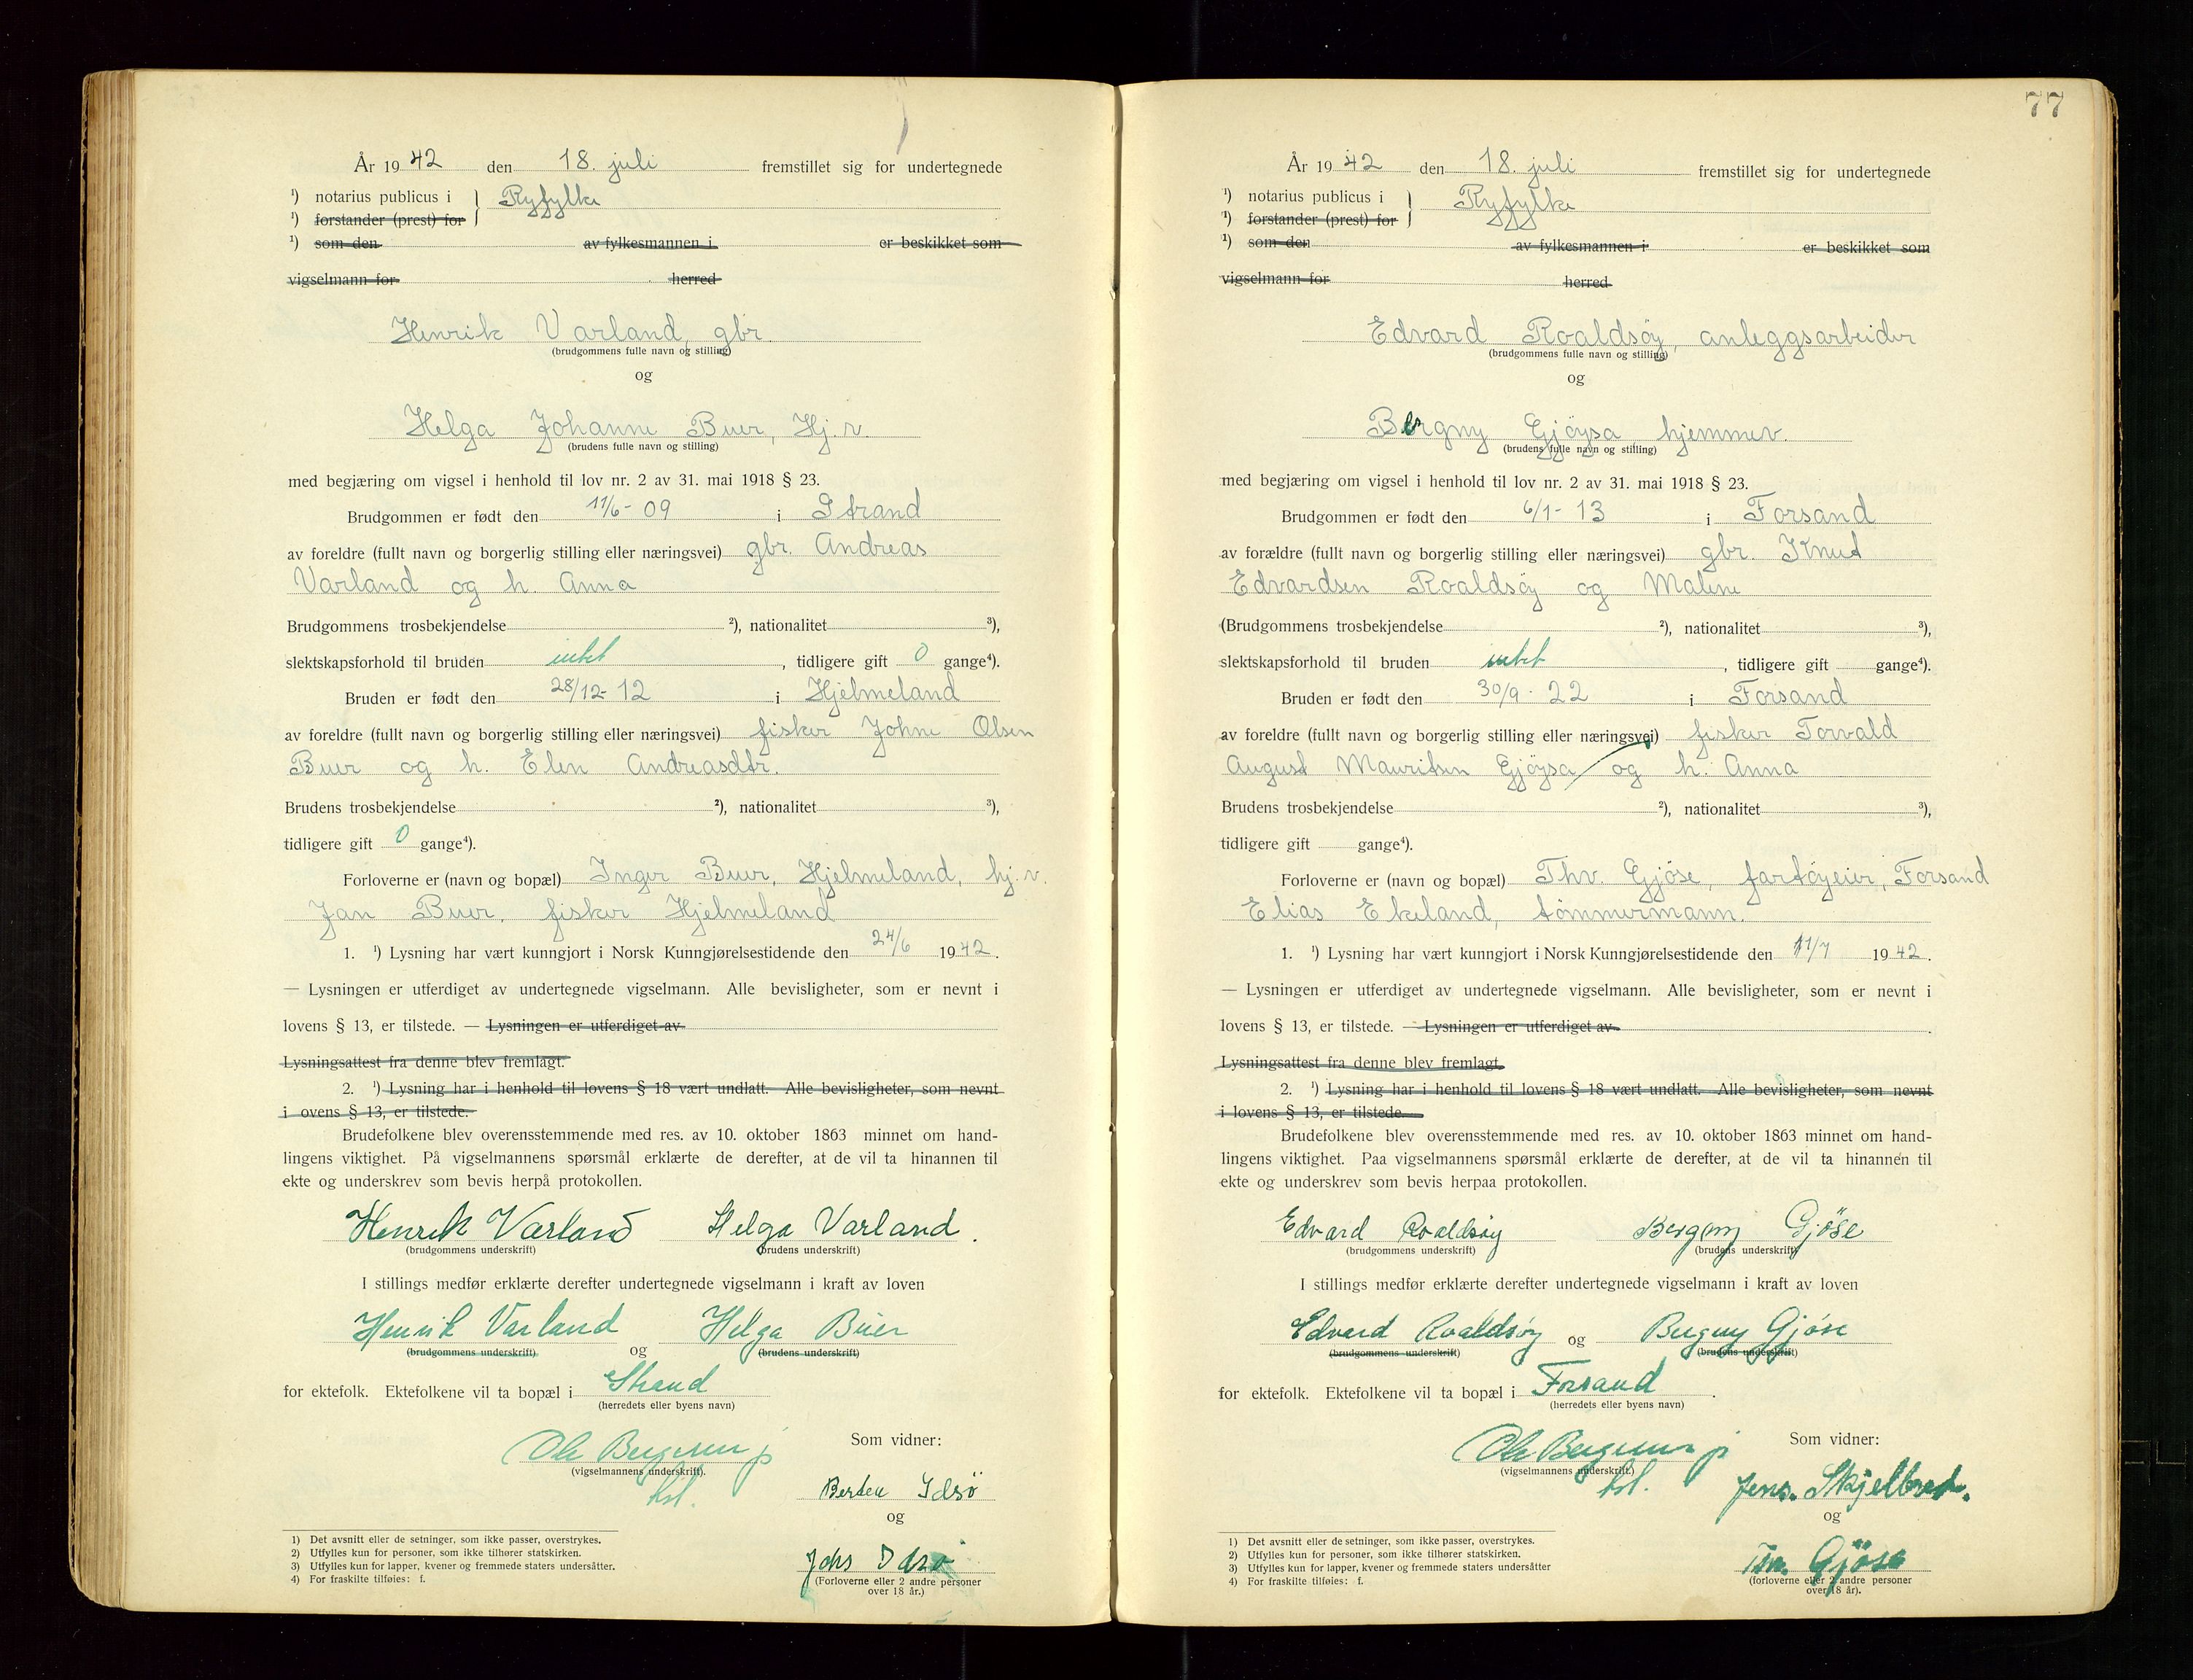 År 1942 den 18. juli fremstillet sig for undertegnede
¹) notarius publicus i } Ryfylke
¹) forstander (prest) for
¹) som den av fylkesmannen i er beskikket som
vigselmann for herred
Henrik Varland, gbr.
(brudgommens fulle navn og stilling)
og
Helga Johanne Buer, Hj.v.
(brudens fulle navn og stilling)
med begjæring om vigsel i henhold til lov nr. 2 av 31. mai 1918 § 23.
Brudgommen er født den 11/6-09 i Strand
av foreldre (fullt navn og borgerlig stilling eller næringsvei) gbr. Andreas
Varland og h. Anna
Brudgommens trosbekjendelse ²), nationalitet ³),
slektskapsforhold til bruden intet, tidligere gift 0 gange⁴).
Bruden er født den 28/12-12 i Hjelmeland
av foreldre (fullt navn og borgerlig stilling eller næringsvei) fisker Johne Olsen
Buer og h. Elen Andreasdtr.
Brudens trosbekjendelse ²), nationalitet ³),
tidligere gift 0 gange⁴).
Forloverne er (navn og bopæl) Inger Buer, Hjelmeland, hj.v.
Jan Buer, fisker Hjelmeland
1. ¹) Lysning har vært kunngjort i Norsk Kunngjørelsestidende den 24/6 1942.
— Lysningen er utferdiget av undertegnede vigselmann. Alle bevisligheter, som er nevnt i
lovens § 13, er tilstede. — Lysningen er utferdiget av
Lysningsattest fra denne blev fremlagt.
2. ¹) Lysning har i henhold til lovens § 18 vært undlatt. Alle bevisligheter, som nevnt
i ovens § 13, er tilstede.
Brudefolkene blev overensstemmende med res. av 10. oktober 1863 minnet om hand-
lingens viktighet. På vigselmannens spørsmål erklærte de derefter, at de vil ta hinannen til
ekte og underskrev som bevis herpå protokollen.
Henrik Varland Helga Varland.
(brudgommens underskrift) (brudens underskrift)
I stillings medfør erklærte derefter undertegnede vigselmann i kraft av loven
Henrik Varland og Helga Buer
(brudgommens underskrift) (brudens underskrift)
for ektefolk. Ektefolkene vil ta bopæl i Strand
(herredets eller byens navn)
Ole Bergesen jr
(vigselmannens underskrift).
Som vidner:
Berten Idsö
og
Johs Idsø
(Forloverne eller 2 andre personer
over 18 år.)
1) Det avsnitt eller de setninger, som ikke passer, overstrykes.
2) Utfylles kun for personer, som ikke tilhører statskirken.
3) Utfylles kun for lapper, kvener og fremmede staters undersåtter.
4) For fraskilte tilføies: f.
77
År 1942 den 18. juli fremstillet sig for undertegnede
¹) notarius publicus i } Ryfylke
¹) forstander (prest) for
¹) som den av fylkesmannen i er beskikket som
vigselmann for herred
Edvard Roaldsøy, anleggsarbeider
(brudgommens fulle navn og stilling)
og
Bergny Gjøysa hjemmev.
(brudens fulle navn og stilling)
med begjæring om vigsel i henhold til lov nr. 2 av 31. mai 1918 § 23.
Brudgommen er født den 6/1-13 i Forsand
av forældre (fullt navn og borgerlig stilling eller næringsvei) gbr. Knut
Edvardsen Roaldsøy og Malene
(Brudgommens trosbekjendelse ²), nationalitet ³),
slektskapsforhold til bruden intet, tidligere gift gange⁴).
Bruden er født den 30/9-22 i Forsand
av foreldre (fullt navn og borgerlig stilling eller næringsvei) fisker Torvald
August Mauritsen Gjøysa og h. Anna
Brudens trosbekjendelse ²), nationalitet ³),
tidligere gift gange⁴).
Forloverne er (navn og bopæl) Thv. Gjøse, fartøyeier, Forsand
Elias Ekeland, tømmermann.
1. ¹) Lysning har vært kunngjort i Norsk Kunngjørelsestidende den 11/7 1942.
— Lysningen er utferdiget av undertegnede vigselmann. Alle bevisligheter, som er nevnt i
lovens § 13, er tilstede. — Lysningen er utferdiget av
Lysningsattest fra denne blev fremlagt.
2. ¹) Lysning har i henhold til lovens § 18 vært undlatt. Alle bevisligheter, som nevnt
i lovens § 13, er tilstede.
Brudefolkene blev overensstemmende med res. av 10. oktober 1863 minnet om hand-
lingens viktighet. Paa vigselmannens spørsmål erklærte de derefter, at de vil ta hinannen til
ekte og underskrev som bevis herpaa protokollen.
Edvard Roaldsøy Bergny Gjöse
(brudgommens underskrift) (brudens underskrift)
I stillings medfør erklærte derefter undertegnede vigselmann i kraft av loven
Edvard Roaldsøy og Bergny Gjøse
(brudgommens underskrift) (brudens underskrift)
for ektefolk. Ektefolkene vil ta bopæl i Forsand.
(herredets eller byens navn)
Ole Bergesen jr
(vigselmannens underskrift.)
Som vidner:
Jens. Skjelbred.
og
Gjöse
(forloverne eller 2 andre personer
over 18 år).
1) Det avsnitt eller de setninger, som ikke passer, overstrykes.
2) Utfylles kun for personer, som ikke tilhører statskirken.
3) Utfylles kun for lapper, kvener og fremmede staters undersåtter
4) For fraskilte tilføies: f.